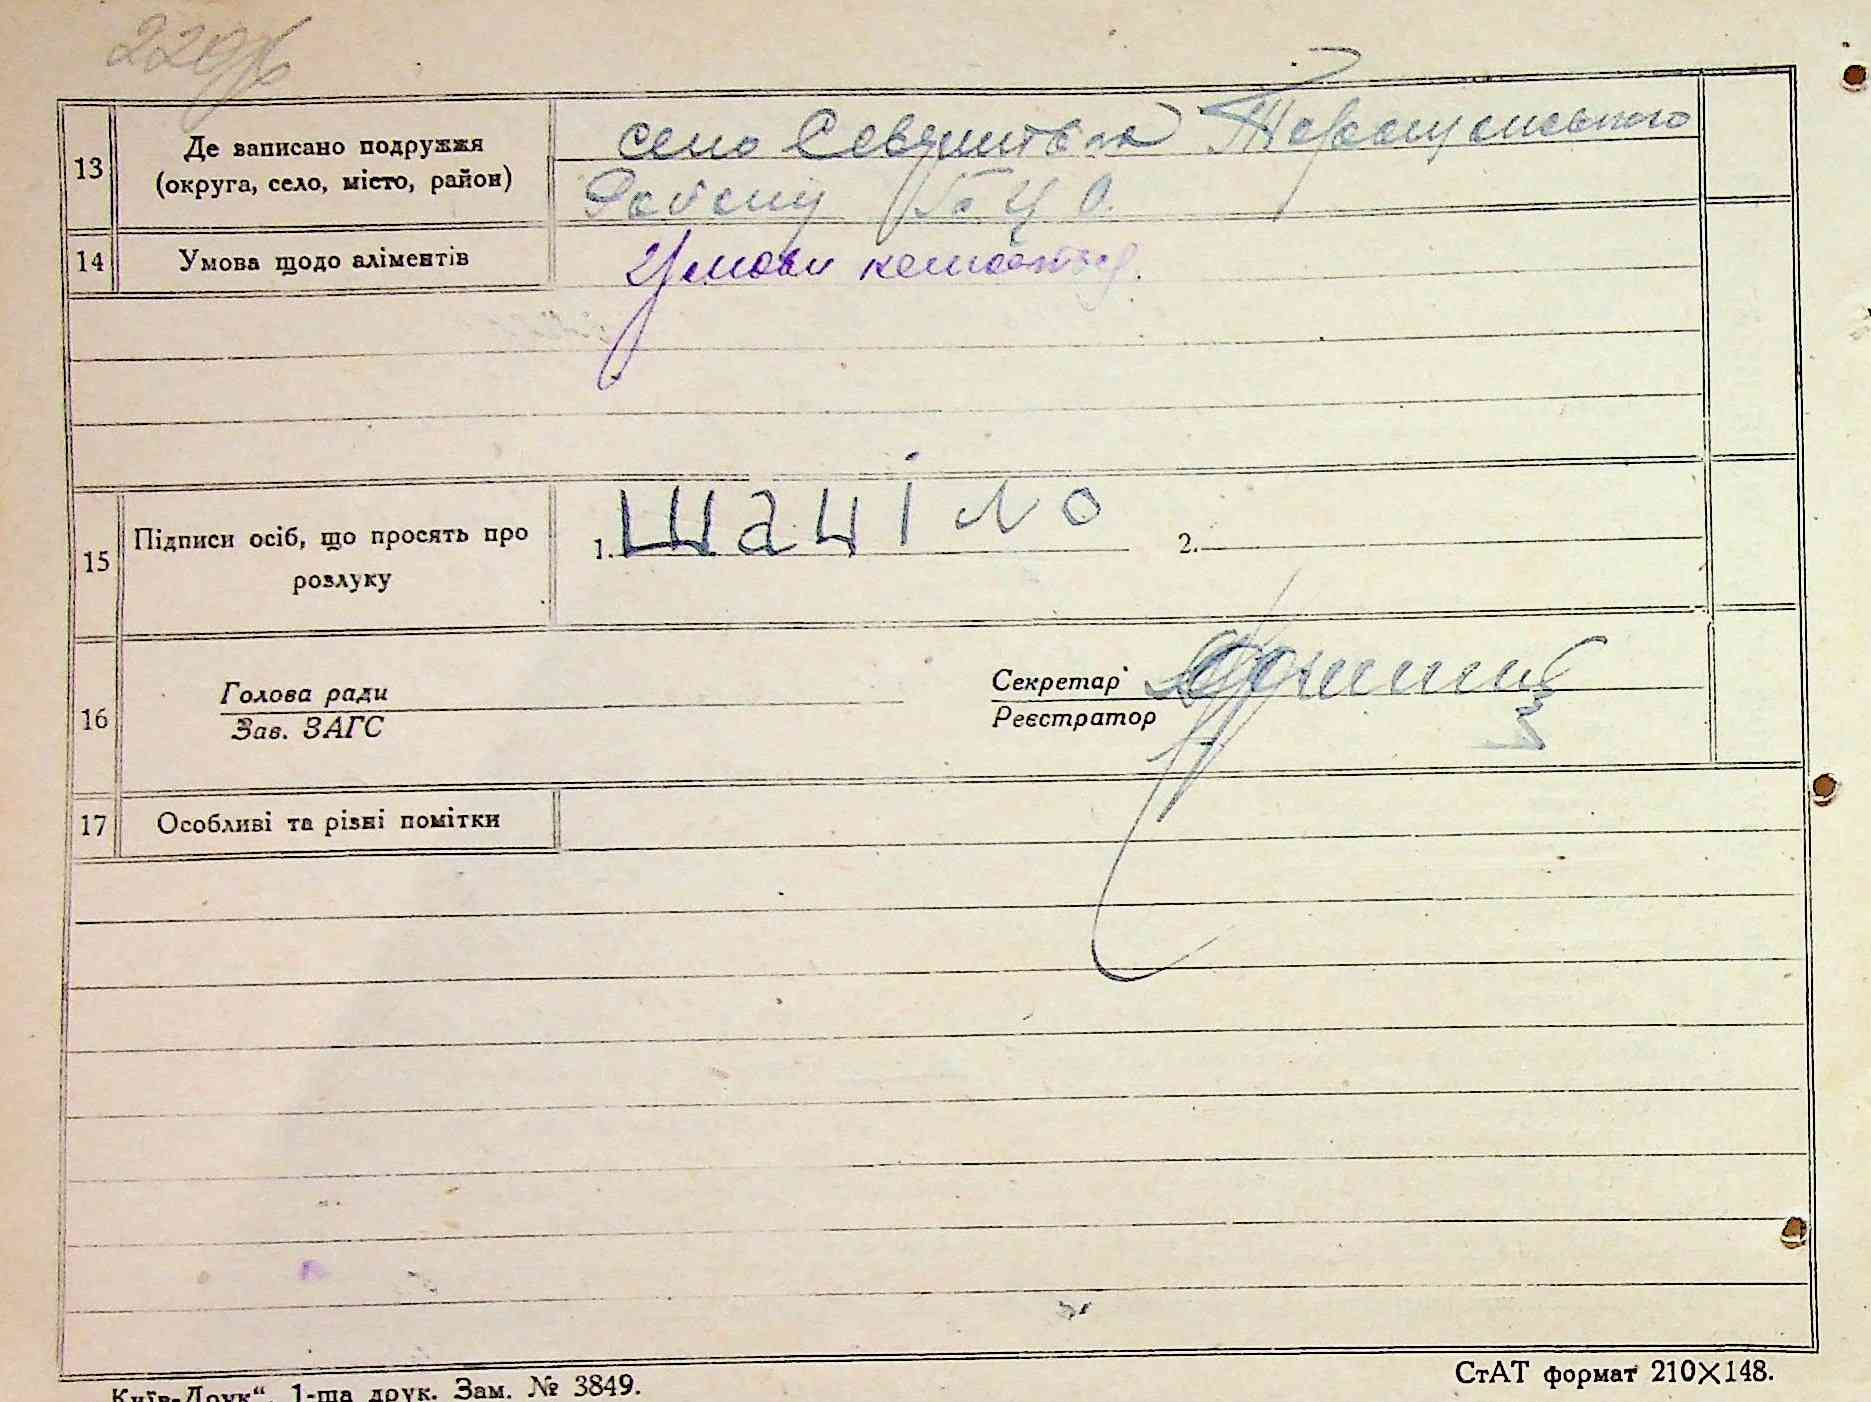 13
Де записано подружжя
(округа, село, місто, район)
село
Району Б. Ц. О.
14
Умова щодо аліментів
Умови
15
Підписи осіб, що просять про
розлуку
1. Шаціло
2.
16
Голова ради
Зав. ЗАГС
Секретар
Реєстратор
17
Особливі та різні помітки
Київ-Друк“. 1-ша друк. Зам. № 3849.
СтАТ формат 210×148.